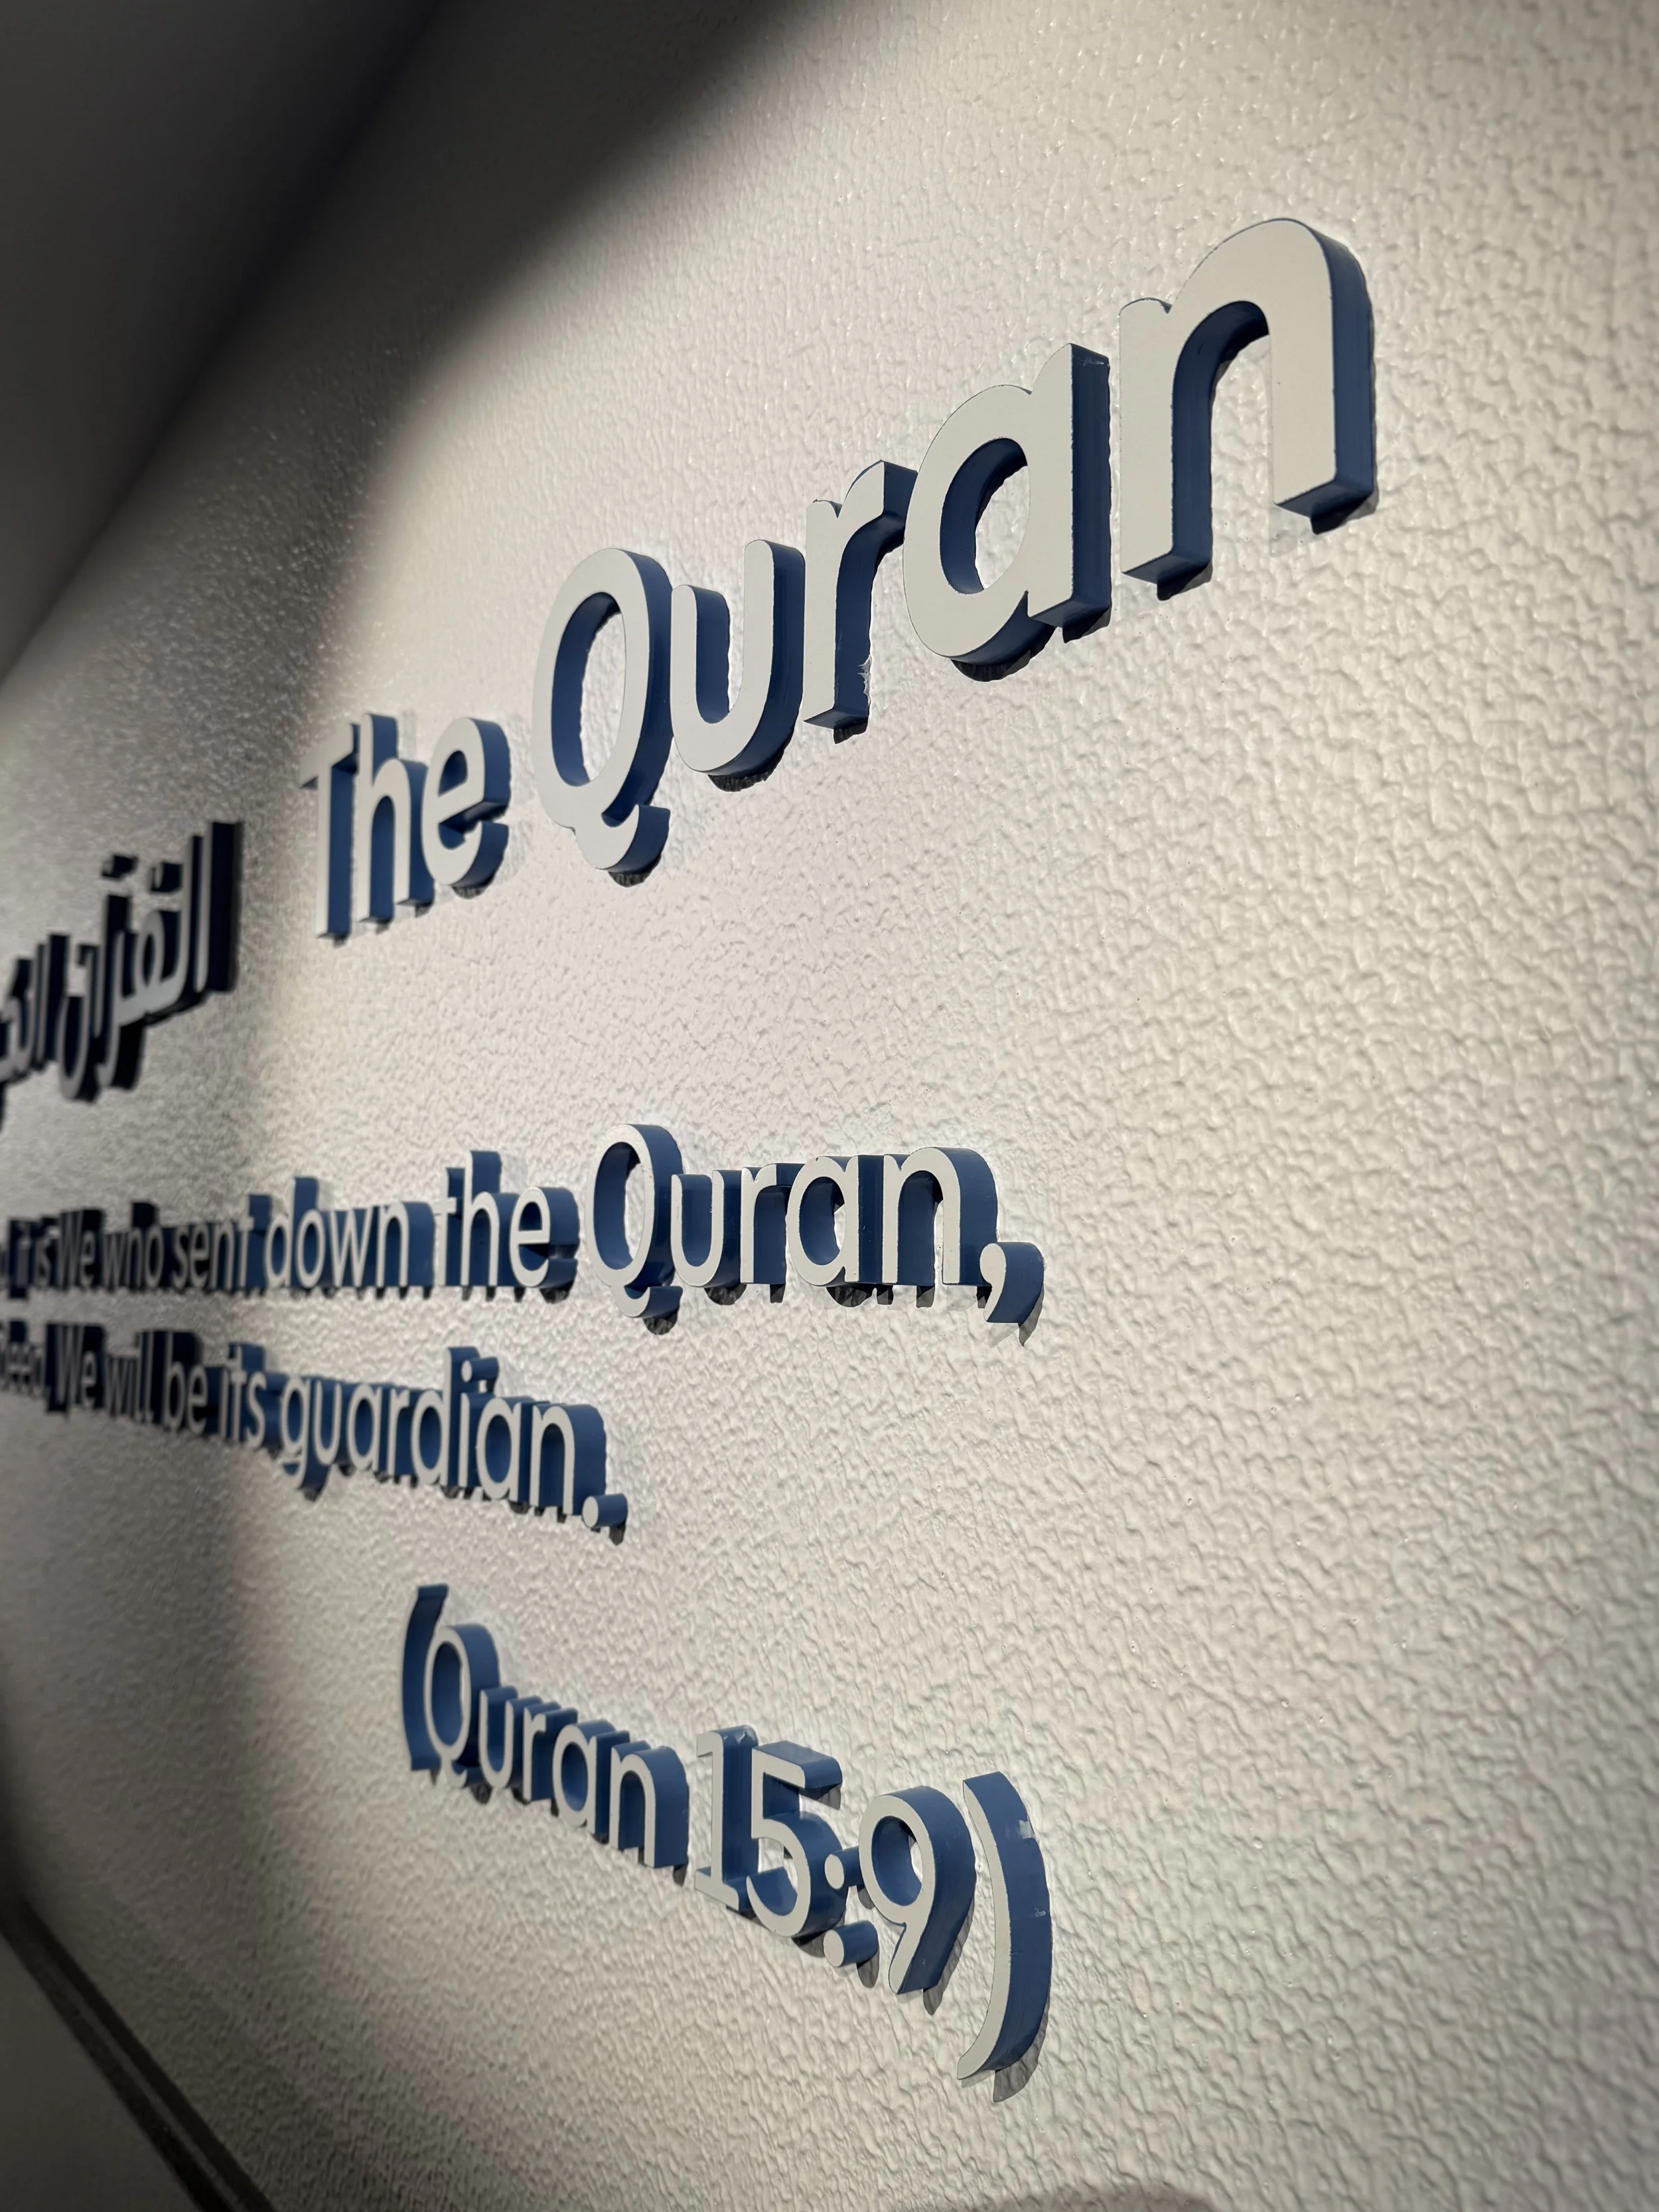 القرآن
The Quran
it is We who sent down the Quran,
We will be its guardian.
(Quran 15:9)